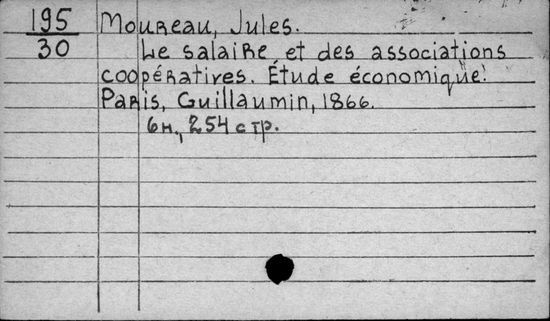 195 Moureau, Jules.
30 Le salaire et des associations
coopératives. Étude économique.
Paris, Guillaumin, 1866.
6н., 254 стр.